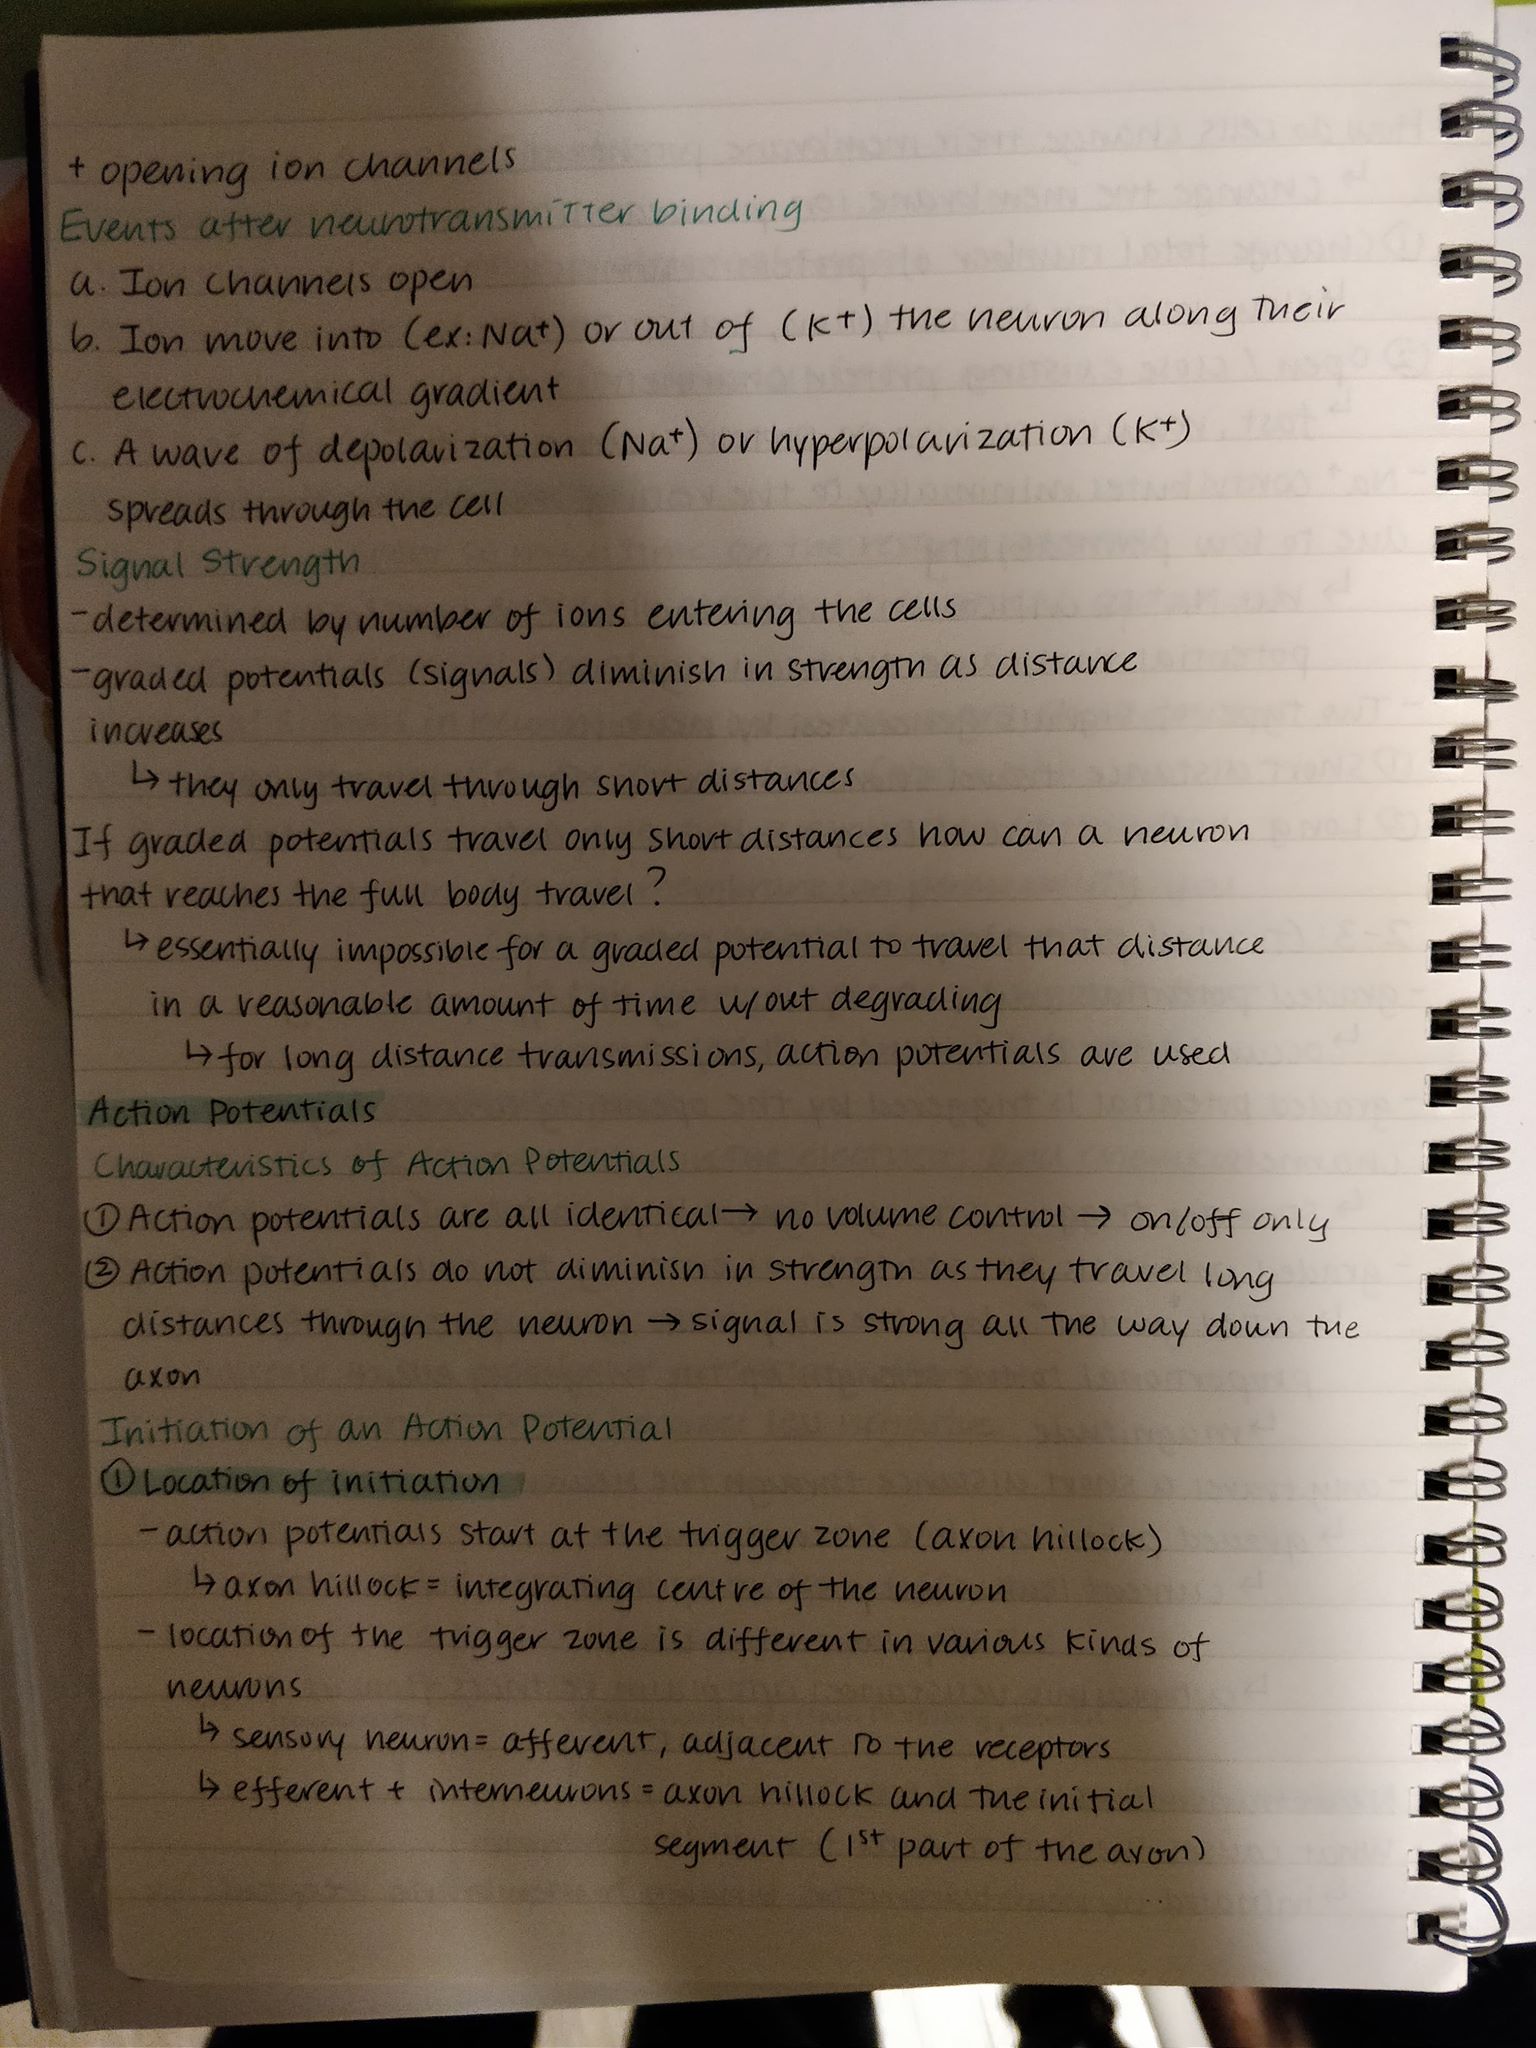 + opening ion channels
Events after neurotransmitter binding
a. Ion channels open
b. Ion move into (ex: Na⁺) or out of (K⁺) the neuron along their
electrochemical gradient
c. A wave of depolarization (Na⁺) or hyperpolarization (K⁺)
spreads through the cell
Signal Strength
- determined by number of ions entering the cells
- graded potentials (signals) diminish in strength as distance
increases
↳ they only travel through short distances
If graded potentials travel only short distances how can a neuron
that reaches the full body travel?
↳ essentially impossible for a graded potential to travel that distance
in a reasonable amount of time w/out degrading
↳ for long distance transmissions, action potentials are used
Action Potentials
Characteristics of Action Potentials
① Action potentials are all identical → no volume control → on/off only
② Action potentials do not diminish in strength as they travel long
distances through the neuron → signal is strong all the way down the
axon
Initiation of an Action Potential
① Location of initiation
- action potentials start at the trigger zone (axon hillock)
↳ axon hillock = integrating centre of the neuron
- location of the trigger zone is different in various kinds of
neurons
↳ sensory neuron = afferent, adjacent to the receptors
↳ efferent + interneurons = axon hillock and the initial
segment (1st part of the axon)